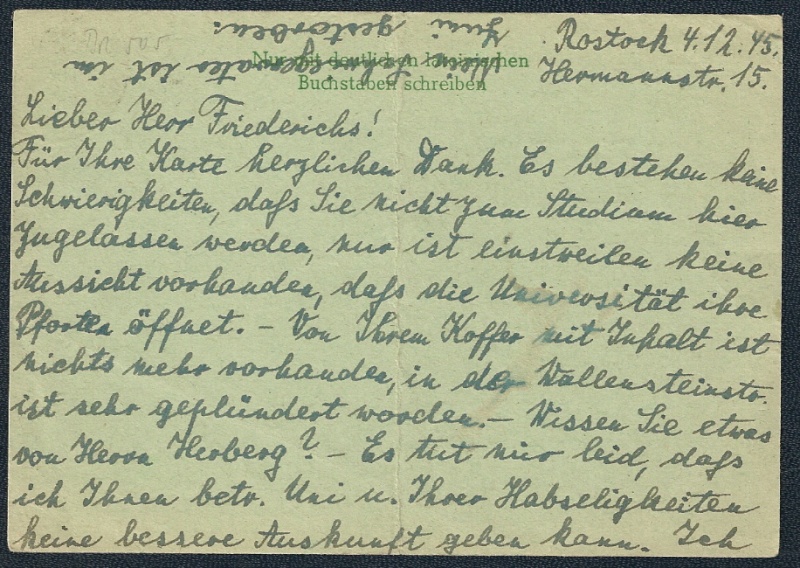 Rostock 4.12.45.
Hermannstr. 15.
Nur mit deutlichen lateinischen
Buchstaben schreiben
Lieber Herr Friederichs!
Für Ihre Karte herzlichen Dank. Es bestehen keine
Schwierigkeiten, daß Sie nicht zum Studium hier
zugelassen werden, nur ist einstweilen keine
Aussicht vorhanden, daß die Universität ihre
Pforten öffnet. – Von Ihrem Koffer mit Inhalt ist
nichts mehr vorhanden, in der Wallensteinstr.
ist sehr geplündert worden. – Wissen Sie etwas
von Herrn Herberg? – Es tut mir leid, daß
ich Ihnen betr. Uni u. Ihrer Habseligkeiten
keine bessere Auskunft geben kann. Ich
Mein Schwiegervater ist im
Juni gestorben.